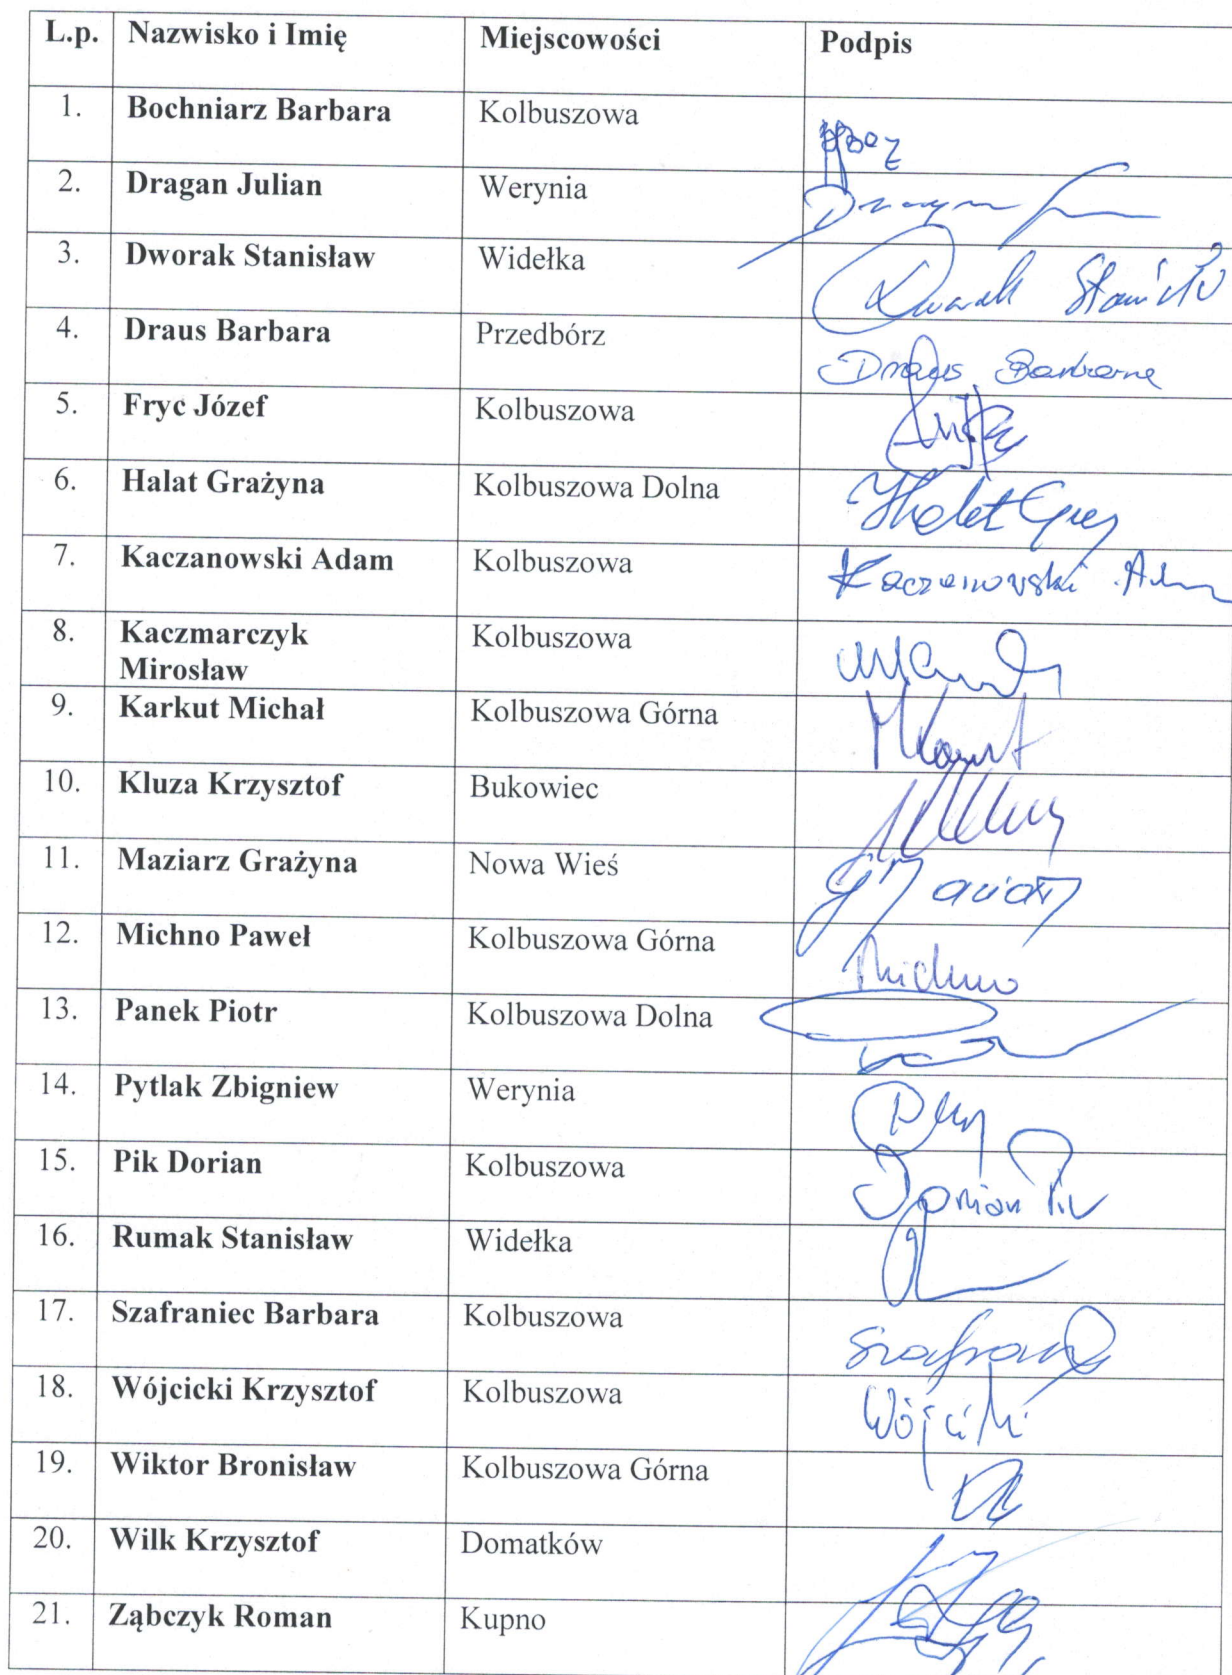 L.p. Nazwisko i Imię Miejscowości Podpis
1. Bochniarz Barbara Kolbuszowa
2. Dragan Julian Werynia
3. Dworak Stanisław Widełka
4. Draus Barbara Przedbórz Draus Barbara
5. Fryc Józef Kolbuszowa
6. Halat Grażyna Kolbuszowa Dolna
7. Kaczanowski Adam Kolbuszowa Kaczanowski Adam
8. Kaczmarczyk Kolbuszowa
Mirosław
9. Karkut Michał Kolbuszowa Górna
10. Kluza Krzysztof Bukowiec
11. Maziarz Grażyna Nowa Wieś
12. Michno Paweł Kolbuszowa Górna Michno
13. Panek Piotr Kolbuszowa Dolna
14. Pytlak Zbigniew Werynia
15. Pik Dorian Kolbuszowa Dorian Pik
16. Rumak Stanisław Widełka
17. Szafraniec Barbara Kolbuszowa
18. Wójcicki Krzysztof Kolbuszowa Wójcicki
19. Wiktor Bronisław Kolbuszowa Górna
20. Wilk Krzysztof Domatków
21. Ząbczyk Roman Kupno